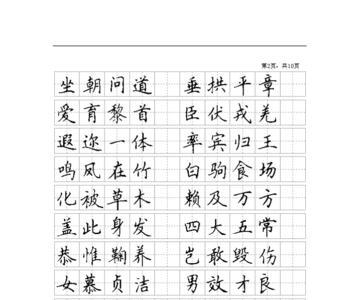 第2页，共10页
坐朝问道 垂拱平章
爱育黎首 臣伏戎羌
遐迩一体 率宾归王
鸣凤在竹 白驹食场
化被草木 赖及万方
盖此身发 四大五常
恭惟鞠养 岂敢毁伤
女慕贞洁 男效才良